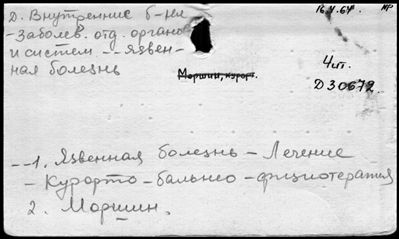 Д. Внутренние б-ни
16.V.64.
- Заболев. отд. органов
и систем -- Язвен-
ная болезнь
Моршин, курорт.
4 шт.
Д30672.
--1. Язвенная болезнь - Лечение
- Курорто - бальнео - физиотерапия
2. Моршин.